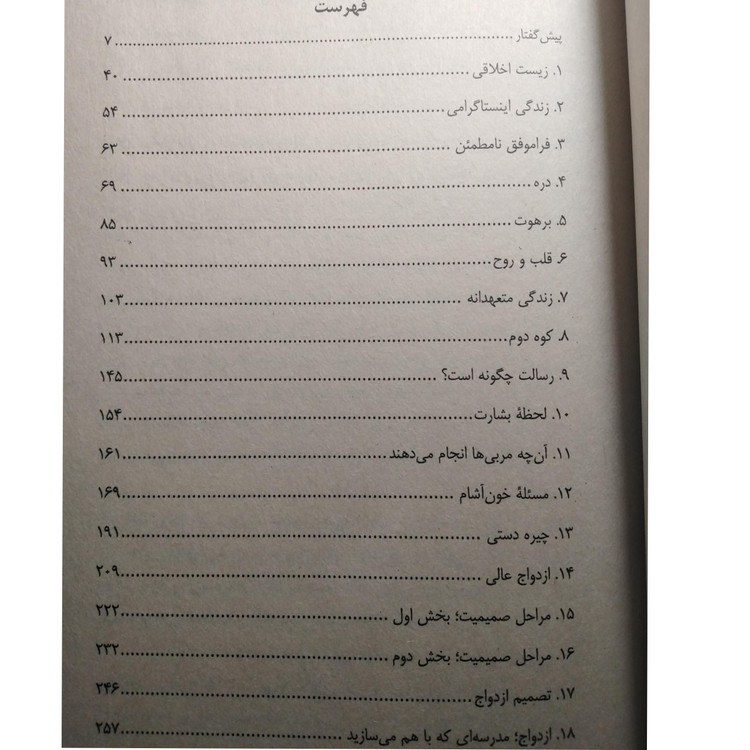 فهرست
پیش‌گفتار ........ ۷
۱. زیست اخلاقی ........ ۴۰
۲. زندگی اینستاگرامی ........ ۵۴
۳. فراموفق نامطمئن ........ ۶۳
۴. دره ........ ۶۹
۵. برهوت ........ ۸۵
۶. قلب و روح ........ ۹۳
۷. زندگی متعهدانه ........ ۱۰۳
۸. کوه دوم ........ ۱۱۳
۹. رسالت چگونه است؟ ........ ۱۴۵
۱۰. لحظۀ بشارت ........ ۱۵۴
۱۱. آن‌چه مربی‌ها انجام می‌دهند ........ ۱۶۱
۱۲. مسئلۀ خون‌آشام ........ ۱۶۹
۱۳. چیره دستی ........ ۱۹۱
۱۴. ازدواج عالی ........ ۲۰۹
۱۵. مراحل صمیمیت؛ بخش اول ........ ۲۲۲
۱۶. مراحل صمیمیت؛ بخش دوم ........ ۲۳۲
۱۷. تصمیم ازدواج ........ ۲۴۶
۱۸. ازدواج؛ مدرسه‌ای که با هم می‌سازید ........ ۲۵۷